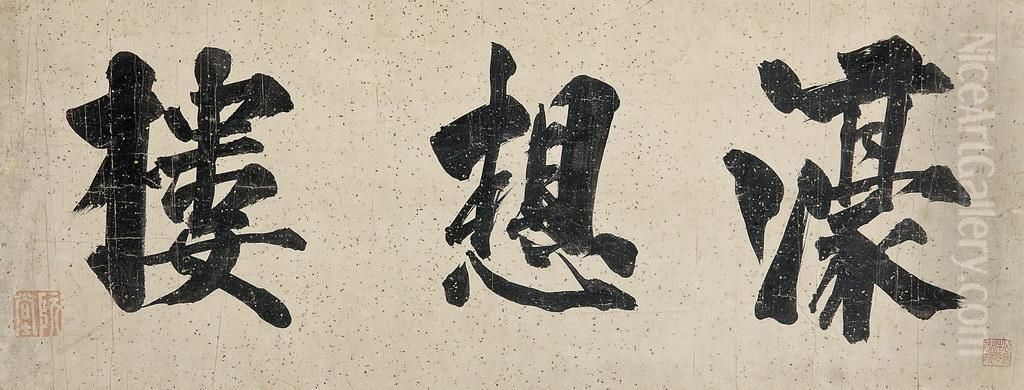 濠想樓
阮堂
NiceArtGallery.com